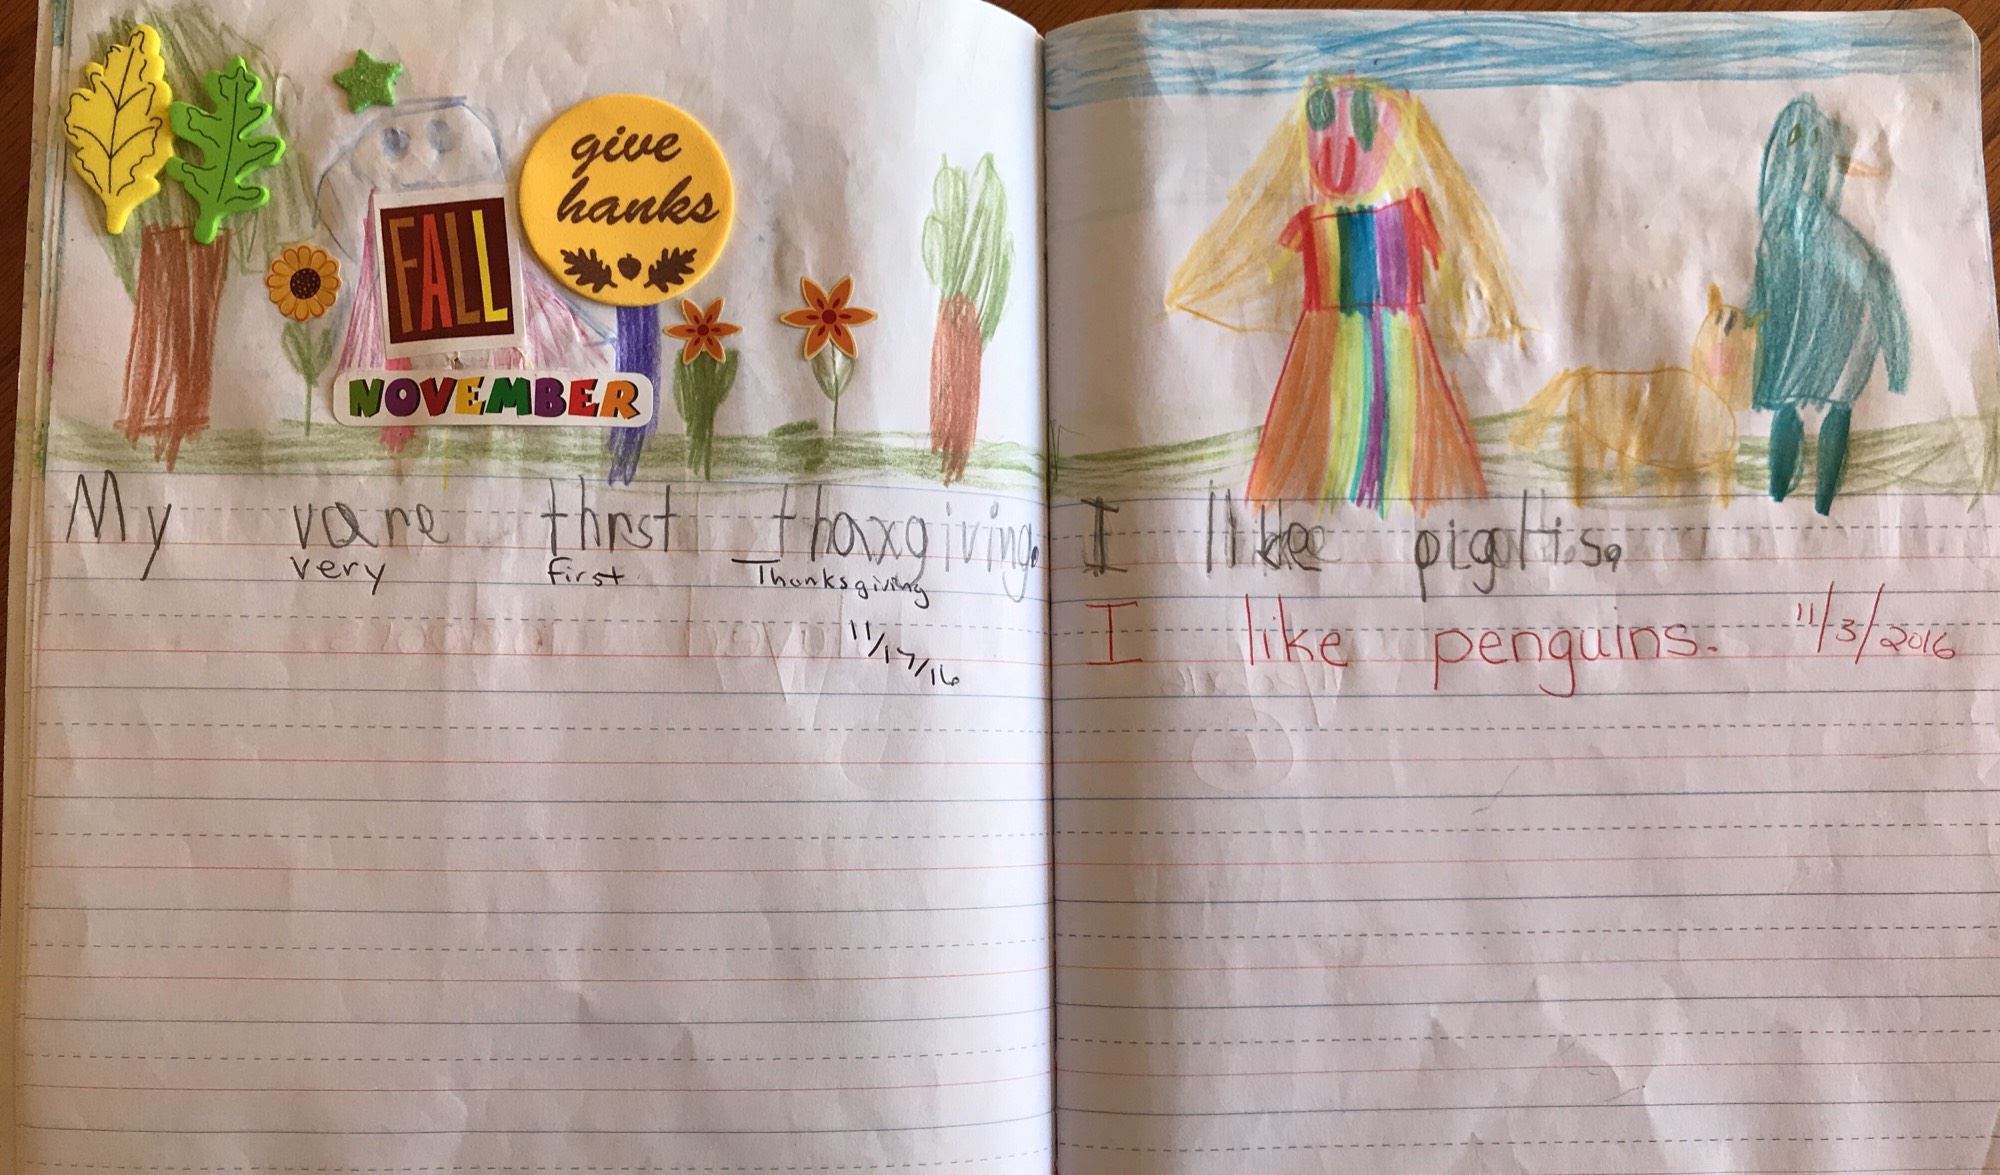 give
hanks
FALL
NOVEMBER
My vare thrst thaxgiving.
very first Thanksgiving
11/17/16
I like pigltis.
I like penguins. 11/3/2016